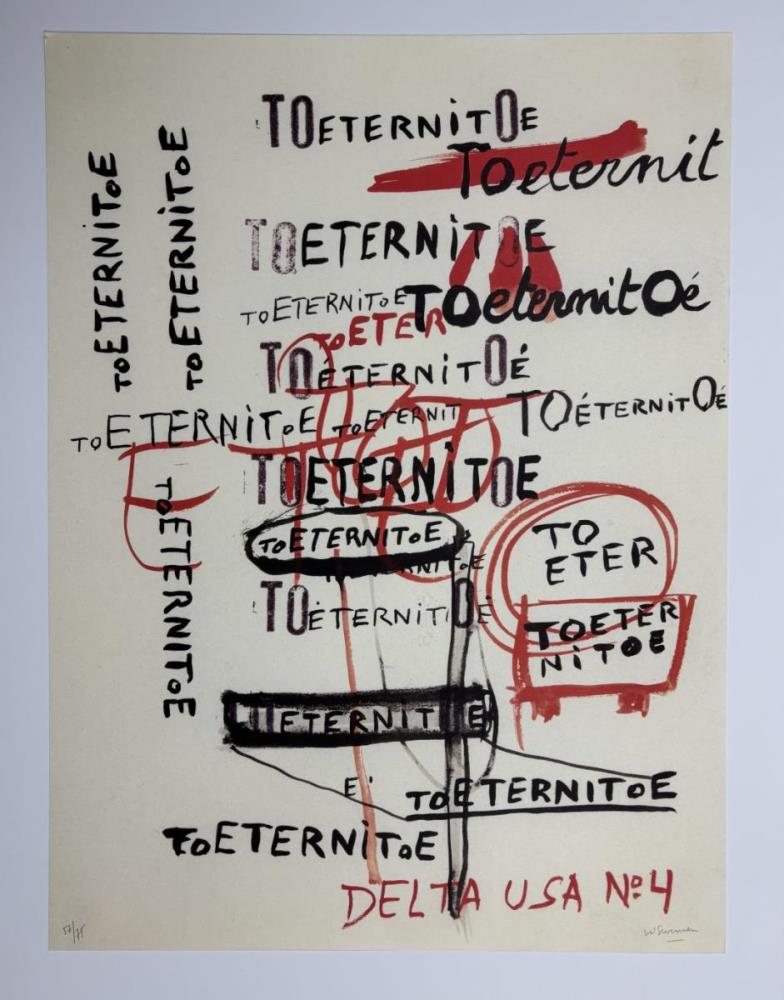 TOETERNiTOE
Toeternit
TOETERNiTOE
TOETERNiTOE
TOETERNiTOE
TOETERNiTOE
TOeternitOé
TOETER
TOÉTERNiTOÉ
TOETERNiTOE
TOETERNIT
TOÉTERNiTOÉ
TOETERNiTOE
TOETERNITOE
TOETERNiTOE
TO
ETER
TOÉTERNITOÉ
TOETER
NiTOE
TOETERNITOE
E'
TOETERNITOE
TOETERNiTOE
DELTA USA Nº4
57/75